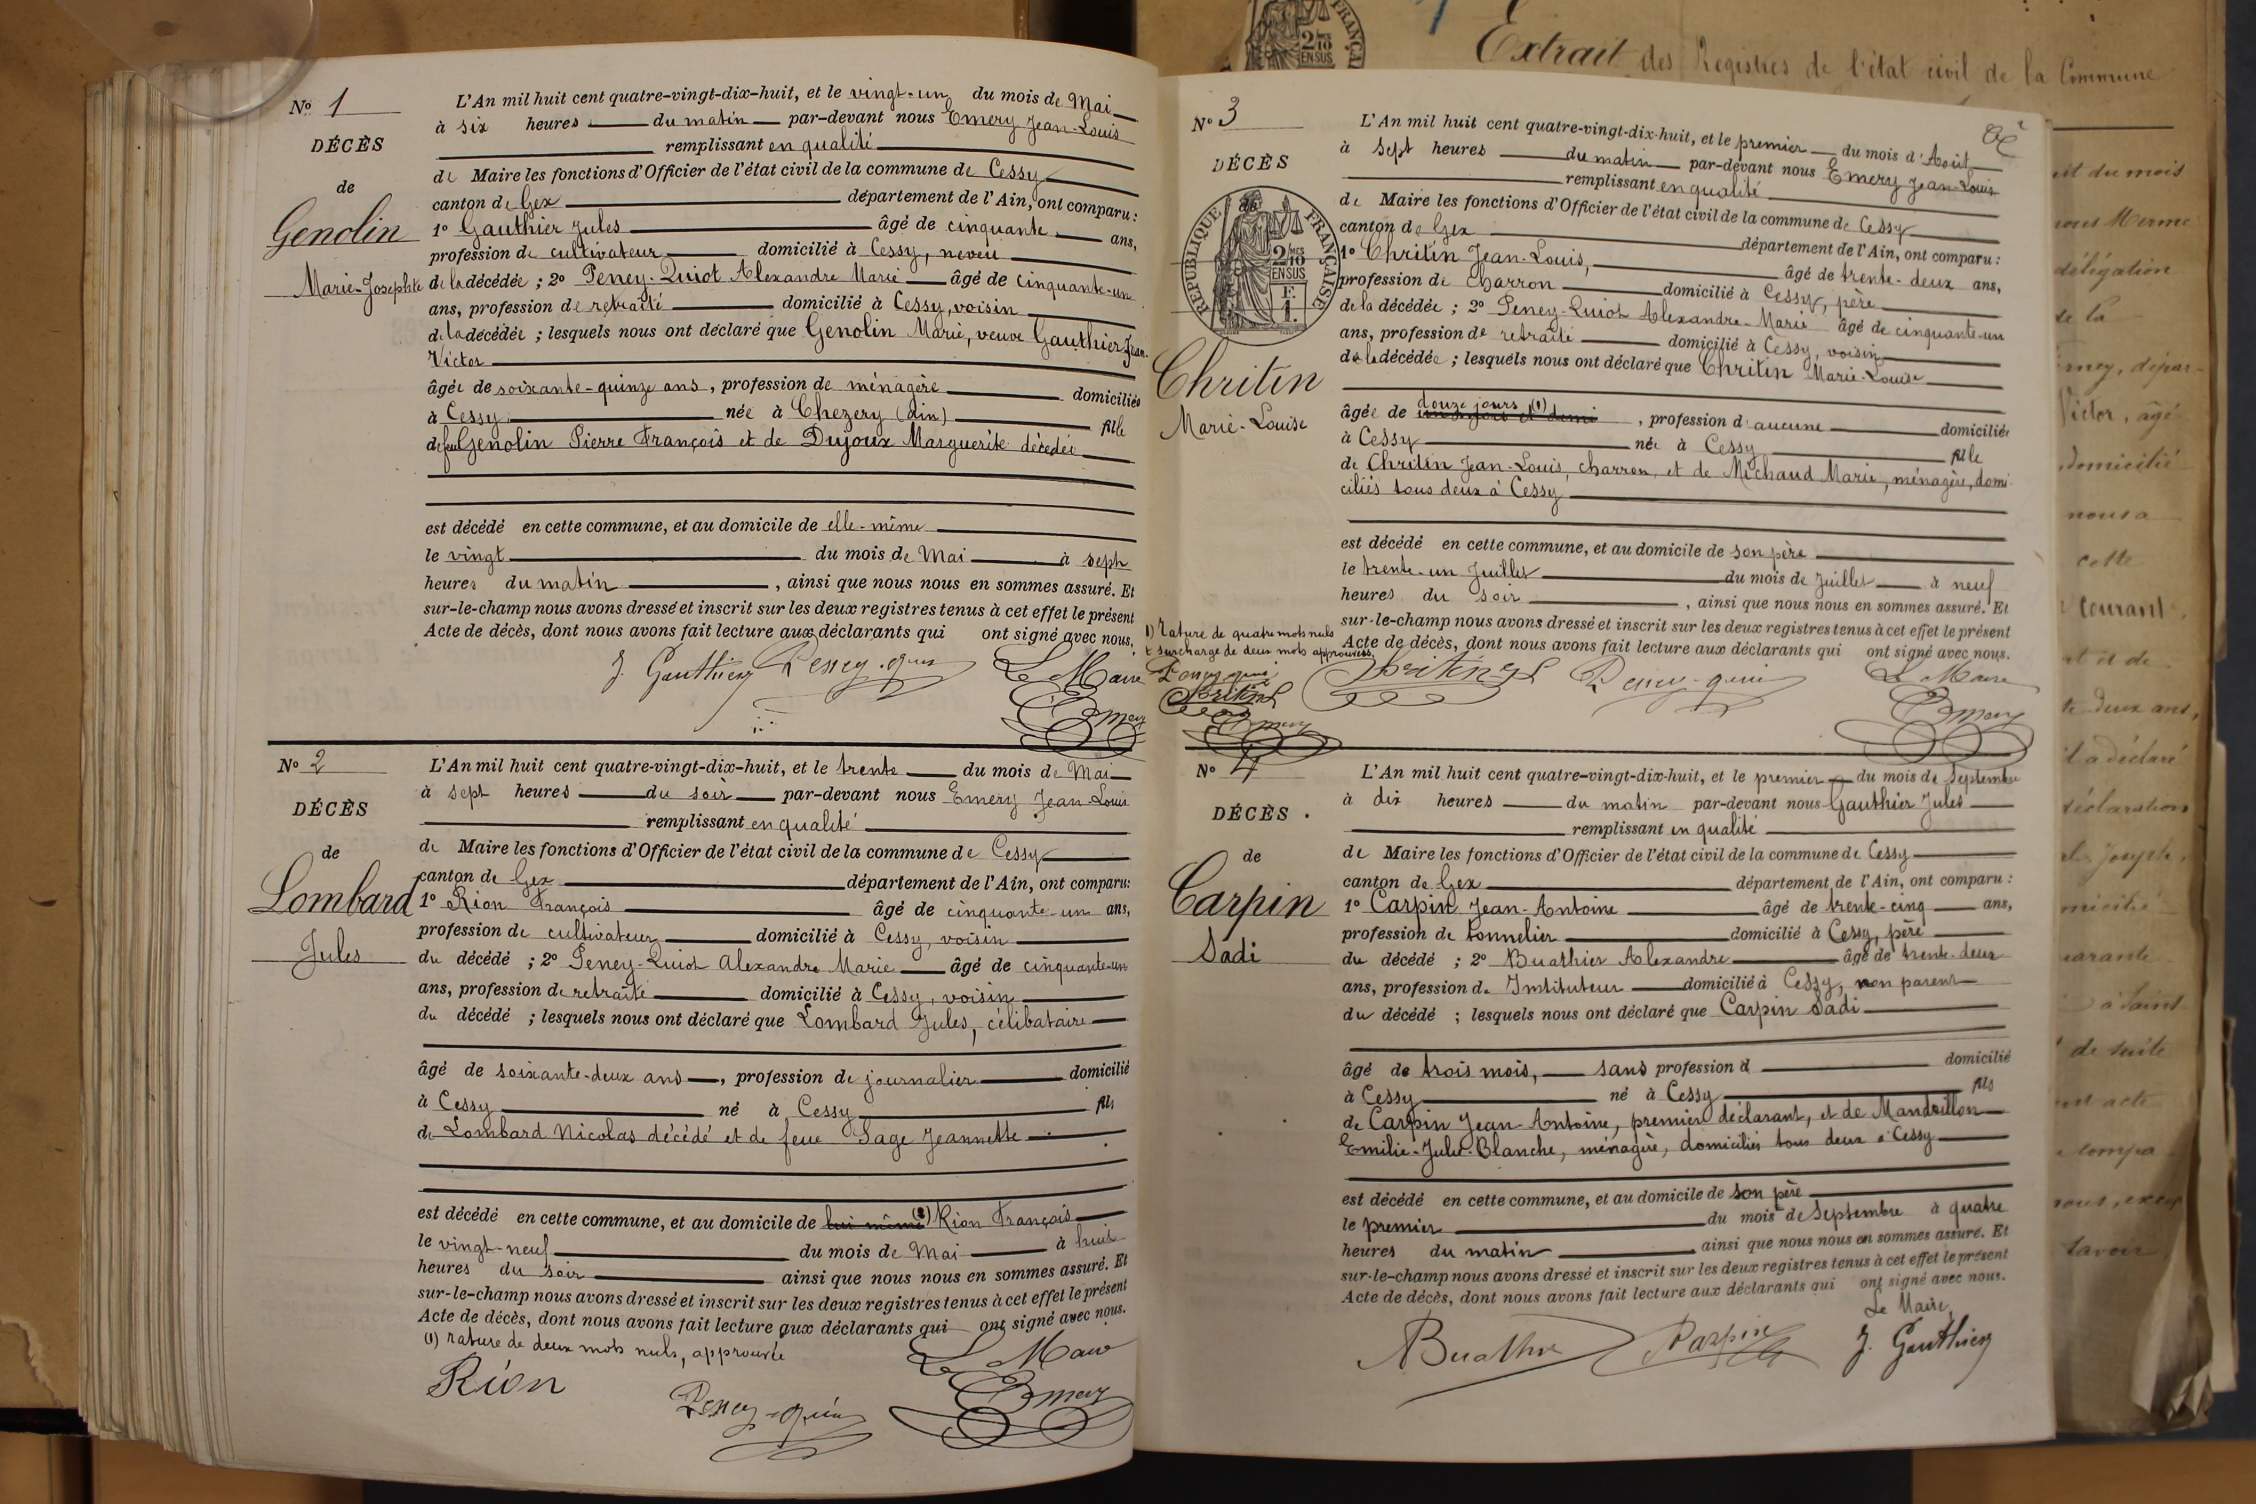 No 1
DÉCÈS
de
Genolin
Marie-Josephte
L'An mil huit cent quatre-vingt-dix-huit, et le vingt-un du mois de Mai
à six heures du matin par-devant nous Emery Jean-Louis
remplissant en qualité
de Maire les fonctions d'Officier de l'état civil de la commune de Cessy
canton de Gex département de l'Ain, ont comparu :
1o Gauthier Jules âgé de cinquante ans,
profession de cultivateur domicilié à Cessy, neveu
de la décédée ; 2o Peney-Quiot Alexandre Marie âgé de cinquante-un
ans, profession de retraité domicilié à Cessy, voisin
de la décédée ; lesquels nous ont déclaré que Genolin Marie, veuve Gauthier Jean-
Victor
âgée de soixante-quinze ans, profession de ménagère domiciliée
à Cessy née à Chezery (Ain) fille
de feu Genolin Pierre François et de Dujoux Marguerite décédée
est décédé en cette commune, et au domicile de elle-même
le vingt du mois de Mai à sept
heures du matin, ainsi que nous nous en sommes assuré. Et
sur-le-champ nous avons dressé et inscrit sur les deux registres tenus à cet effet le présent
Acte de décès, dont nous avons fait lecture aux déclarants qui ont signé avec nous.
J. Gauthier Peney-quiot Le Maire
Emery
No 2
DÉCÈS
de
Lombard
Jules
L'An mil huit cent quatre-vingt-dix-huit, et le trente du mois de Mai
à sept heures du soir par-devant nous Emery Jean-Louis
remplissant en qualité
de Maire les fonctions d'Officier de l'état civil de la commune de Cessy
canton de Gex département de l'Ain, ont comparu :
1o Rion François âgé de cinquante-un ans,
profession de cultivateur domicilié à Cessy, voisin
du décédé ; 2o Peney-Quiot Alexandre Marie âgé de cinquante-un
ans, profession de retraité domicilié à Cessy, voisin
du décédé ; lesquels nous ont déclaré que Lombard Jules, célibataire
âgé de soixante-deux ans, profession de journalier domicilié
à Cessy né à Cessy fils
de Lombard Nicolas décédé et de feue Sage Jeannette
est décédé en cette commune, et au domicile de lui même (1) Rion François
le vingt-neuf du mois de Mai à huit
heures du soir ainsi que nous nous en sommes assuré. Et
sur-le-champ nous avons dressé et inscrit sur les deux registres tenus à cet effet le présent
Acte de décès, dont nous avons fait lecture aux déclarants qui ont signé avec nous.
(1) rature de deux mots nuls, approuvée
Rion Peney-quiot Le Maire
Emery
Extrait des Registres de l'état civil de la Commune
No 3
DÉCÈS
de
RÉPUBLIQUE FRANÇAISE
2/10 EN SUS
F. 1.
Chritin
Marie-Louise
L'An mil huit cent quatre-vingt-dix-huit, et le premier du mois d'Août
à sept heures du matin par-devant nous Emery Jean-Louis
remplissant en qualité
de Maire les fonctions d'Officier de l'état civil de la commune de Cessy
canton de Gex département de l'Ain, ont comparu :
1o Chritin Jean-Louis, âgé de trente-deux ans,
profession de Charron domicilié à Cessy, père
de la décédée ; 2o Peney-Quiot Alexandre-Marie âgé de cinquante-un
ans, profession de retraité domicilié à Cessy, voisin
de la décédée ; lesquels nous ont déclaré que Chritin Marie-Louise
âgée de douze jours (1), profession d'aucune domiciliée
à Cessy née à Cessy fille
de Chritin Jean-Louis, charron, et de Michaud Marie, ménagère, domi
ciliés tous deux à Cessy
est décédé en cette commune, et au domicile de son père
le trente-un Juillet du mois de Juillet à neuf
heures du soir, ainsi que nous nous en sommes assuré. Et
sur-le-champ nous avons dressé et inscrit sur les deux registres tenus à cet effet le présent
Acte de décès, dont nous avons fait lecture aux déclarants qui ont signé avec nous.
1) Rature de quatre mots nuls
et surcharge de deux mots approuvées
Peney-quiot
Chritin
Emery
Chritin Peney-quiot Le Maire
Emery
No 4
DÉCÈS
de
Carpin
Sadi
L'An mil huit cent quatre-vingt-dix-huit, et le premier du mois de Septembre
à dix heures du matin par-devant nous Gauthier Jules
remplissant en qualité
de Maire les fonctions d'Officier de l'état civil de la commune de Cessy
canton de Gex département de l'Ain, ont comparu :
1o Carpin Jean-Antoine âgé de trente-cinq ans,
profession de tonnelier domicilié à Cessy, père
du décédé ; 2o Buathier Alexandre âgé de trente-deux
ans, profession d. Instituteur domicilié à Cessy, non parent
du décédé ; lesquels nous ont déclaré que Carpin Sadi
âgé de trois mois, sans profession d domicilié
à Cessy né à Cessy fils
de Carpin Jean-Antoine, premier déclarant, et de Mandrillon
Emilie-Julie-Blanche, ménagère, domiciliés tous deux à Cessy
est décédé en cette commune, et au domicile de son père
le premier du mois de Septembre à quatre
heures du matin ainsi que nous nous en sommes assuré. Et
sur-le-champ nous avons dressé et inscrit sur les deux registres tenus à cet effet le présent
Acte de décès, dont nous avons fait lecture aux déclarants qui ont signé avec nous.
Le Maire,
Buathier Carpin J. Gauthier